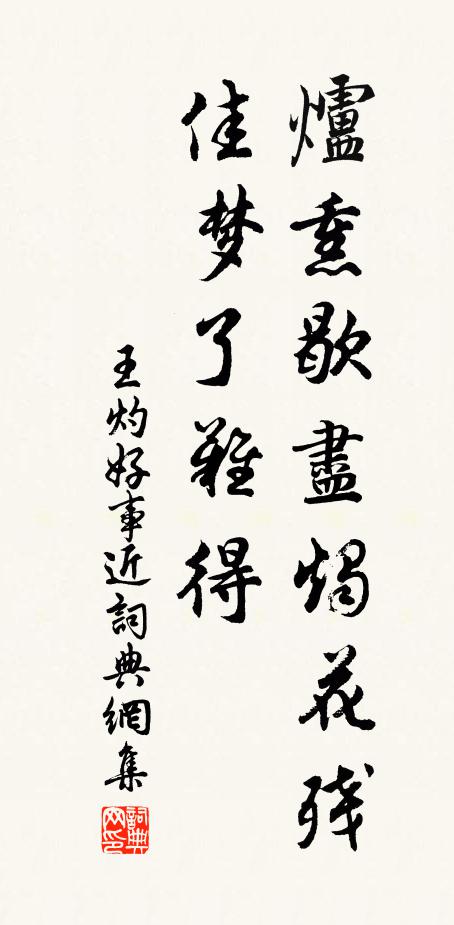 爐熏歇盡燭花残
佳梦了難得
王灼好事近詞典網集
詞典网印